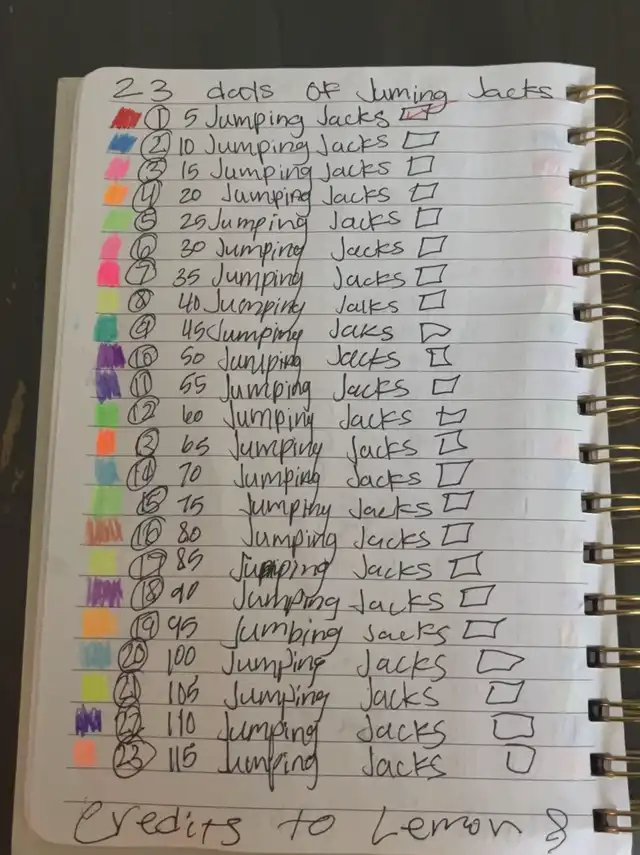 23 dads of Juming Jacks
1 5 Jumping Jacks
2 10 Jumping Jacks
3 15 Jumping Jacks
4 20 Jumping Jacks
5 25 Jumping Jacks
6 30 Jumping Jacks
7 35 Jumping Jacks
8 40 Jumping Jalks
9 45 Jumping Jaks
10 50 Jumping Jacks
11 55 Jumping Jacks
12 60 Jumping Jacks
13 65 Jumping Jacks
14 70 Jumping Jacks
15 75 Jumping Jacks
16 80 Jumping Jacks
17 85 Jumping Jacks
18 90 Jumping Jacks
19 95 Jumbing Jacks
20 100 Jumping Jacks
21 105 Jumping Jacks
22 110 Jumping Jacks
23 115 Jumping Jacks
Credits to Lemon 8